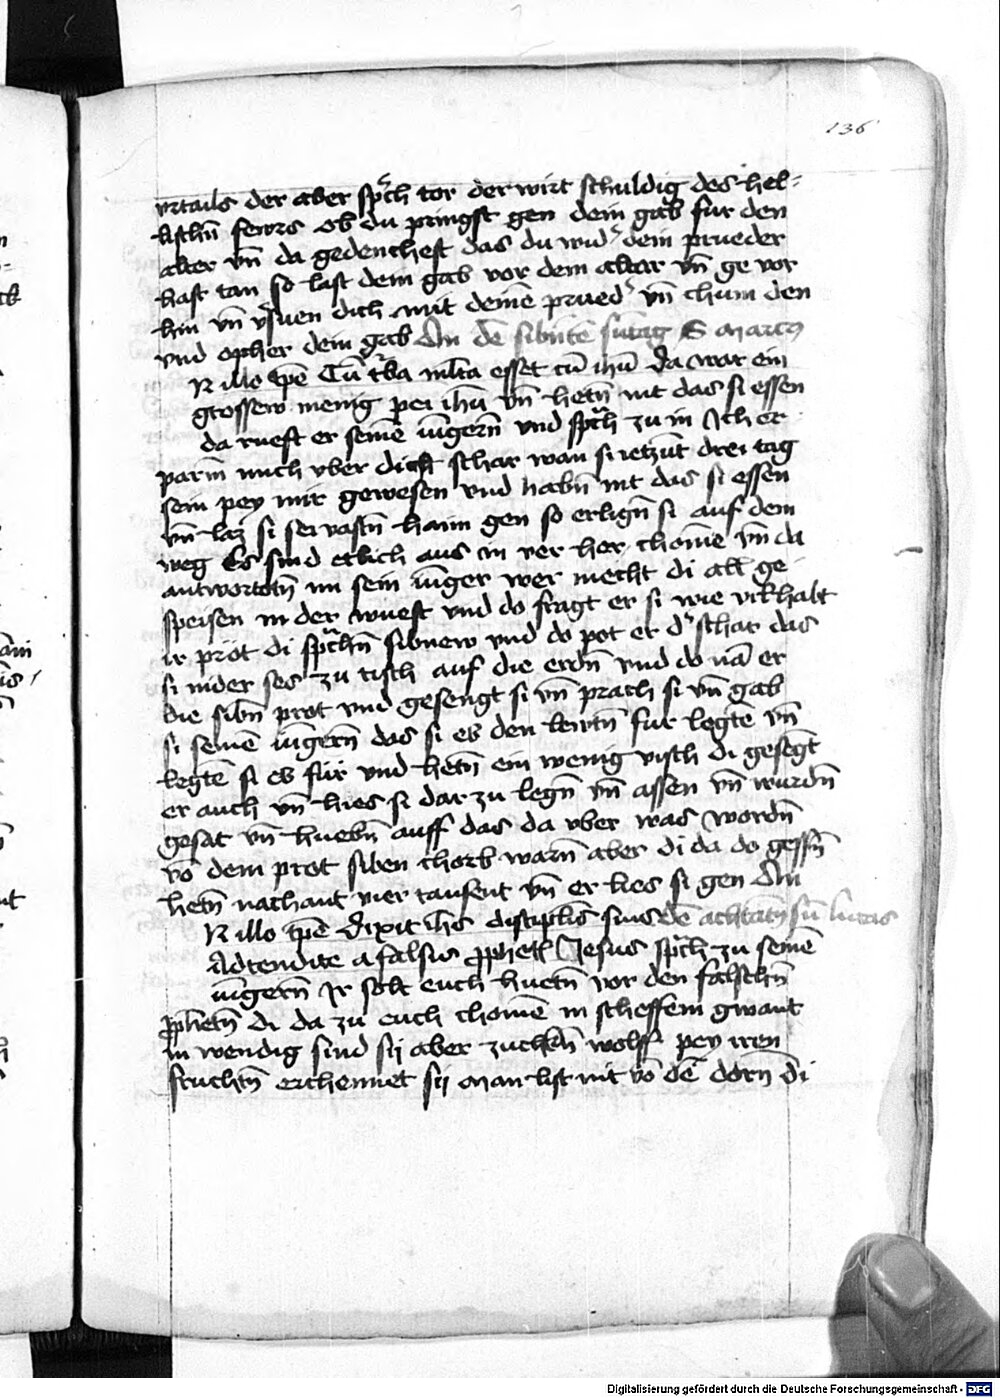 136
vrtails der aber sprch tor der wirt schuldig des hel-
lischn fewrs Ob du pringst gen dein gab fur den
alter vn̄ da gedenchest das du wid' dein prueder
hast tan so last dein gab vor dem altar vn̄ ge vor
hin vn̄ v'suen dich mit deinē prued' vn̄ chum den
vnd opher dein gab Am dē sibntē suntag S marcus
N illo tpē Cū t'ba mlta esset cū ihū Da war ein
grossew menig pei ihū vn̄ hetn̄ nit das si essen
da rueft er seinē iūgern̄ vnd sprch zu in Ich er
parm̄ mich vber dicz schar wan si ietzūt drei tag
sein pey mir gewesen vnd habn̄ nit das si essen
vn̄ laz si sei vastn̄ haim gen so erlign̄ si auf dem
weg Es sind etlich aus in ver her chomē vn̄ da
antwortotn̄ im sein iūger wer mecht di all ge
speisen in der wuest vnd do fragt er si wie vil habt
ir prot di sprchn̄ sibnew vnd do pot er d' schar das
si nider ses zu tisch auf die erdn̄ vnd do nā er
die sibn̄ prot vnd gesengt si vn̄ prach si vn̄ gab
si seinē iūgern̄ das si es den lewtn̄ fur legtē vn̄
legtē si es für vnd hetn̄ ein wenig visch di gesegt
er auch vn̄ hies si dar zu legn̄ vn̄ assen vn̄ wurdn̄
gesat vn̄ huebn̄ auff das da vber was wordn̄
vō dem prot siben chorb warn̄ aber di da do gessn̄
hetn̄ nachant vier tausent vn̄ er lies si gen Am
N illo tpē Dixit ihs discipulis suis dē achtatn̄ sū lucas
Adtendite a falsis pphetis Jesus sprch zu seinē
iūgern̄ Ir solt euch huetn̄ vor den falschn̄
pphetn̄ di da zu euch chomē in scheffem gwant
in wendig sind sij aber zuckn̄ wolff pey iren
fruchtn̄ erchennet sij Man list nit vō dē dorn̄ di
Digitalisierung gefördert durch die Deutsche Forschungsgemeinschaft - DFG